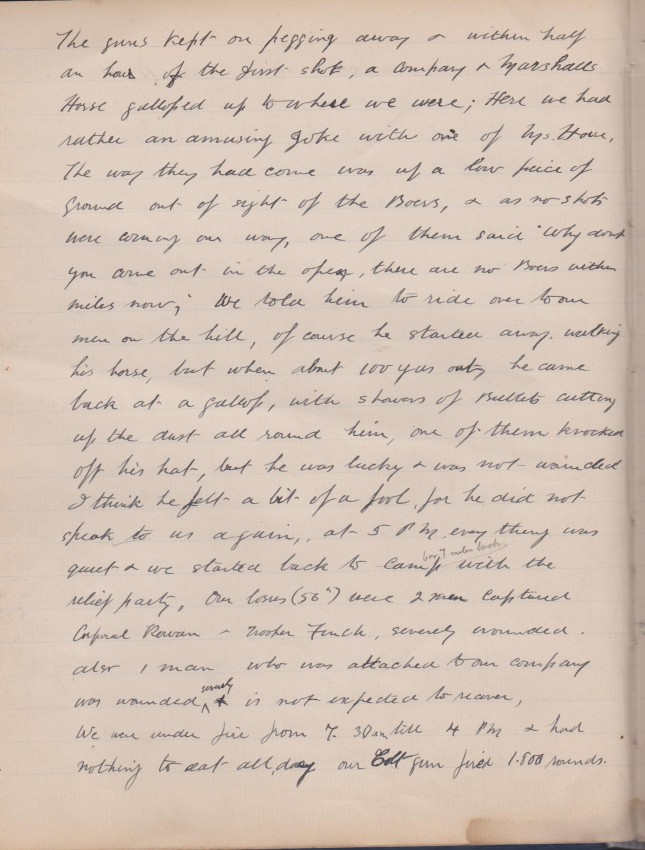 The guns kept on pegging away & within half
an hour of the first shot, a company & Marshalls
Horse galloped up to where we were; Here we had
rather an amusing joke with one of Ms. Horse,
The way they had come was up a low peice of
ground out of sight of the Boers, & as no shots
were coming our way, one of them said "Why dont
you come out in the open, there are no Boers within
miles now;" We told him to ride over to our
men on the hill, of course he started away. walking
his horse, but when about 100 yds out, he came
back at a gallop, with showers of Bullets cutting
up the dust all round him, one of them knocked
off his hat, but he was lucky & was not wounded
I think he felt a bit of a fool, for he did not
speak to us again,. at 5 PM every thing was
6 or 7 miles back
quiet & we started back to camp with the
relief party, Our losses (56") were 2 men captured
Corporal Rowan & Trooper Finch, severely wounded.
also 1 man who was attached to our company
severely
was wounded & is not expected to recover,
We were under fire from 7. 30 am till 4 PM & had
nothing to eat all day our Colt gun fired 1.800 rounds.